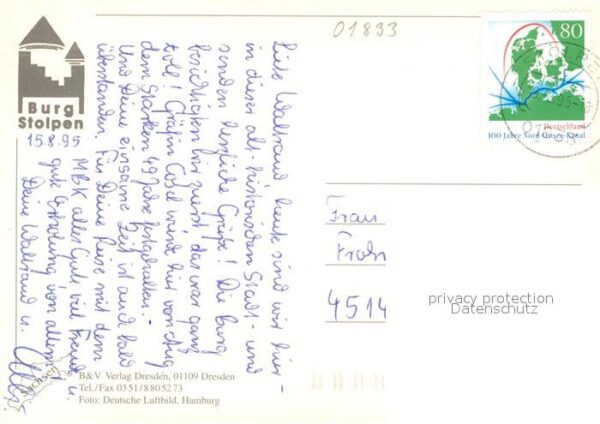 01833
80
Deutschland
100 Jahre Nord-Ostsee-Kanal
Burg
Stolpen
15.8.95
Liebe Waltraud, heute sind wir hier
in dieser alt-historischen Stadt - und
senden herzliche Grüße! Die Burg
besichtigten wir zuerst, das war ganz
toll! Gräfin Cosel wurde hier von August
dem Starken 49 Jahre festgehalten. -
Und Deine einsame Zeit ist auch bald
überstanden. Für Deine Reise mit dem
MBK alles Gute, viel Freude u.
gute Erholung von allem!
Deine Waltraud u.
Frau
Frohn
4514
privacy protection
Datenschutz
Sachsen
B&V Verlag Dresden, 01109 Dresden
Tel./Fax 0351/8805273
Foto: Deutsche Luftbild, Hamburg